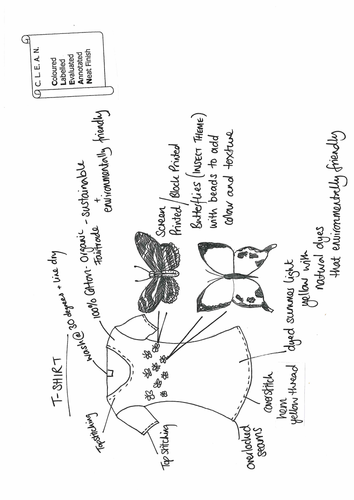 C.L.E.A.N.
Coloured
Labelled
Evaluated
Annotated
Neat Finish
T-SHIRT
wash @ 30 degrees + line dry
100% Cotton - Organic - sustainable
Fairtrade + environmentally friendly
Screen
Printed / Block Printed
Butterflies (INSECT THEME)
with beads to add
colour and texture
Topstitching
Top stitching
overlocked
seams
coverstitch
hem
yellow thread
dyed summer light
yellow with
natural dyes
that environmentally friendly